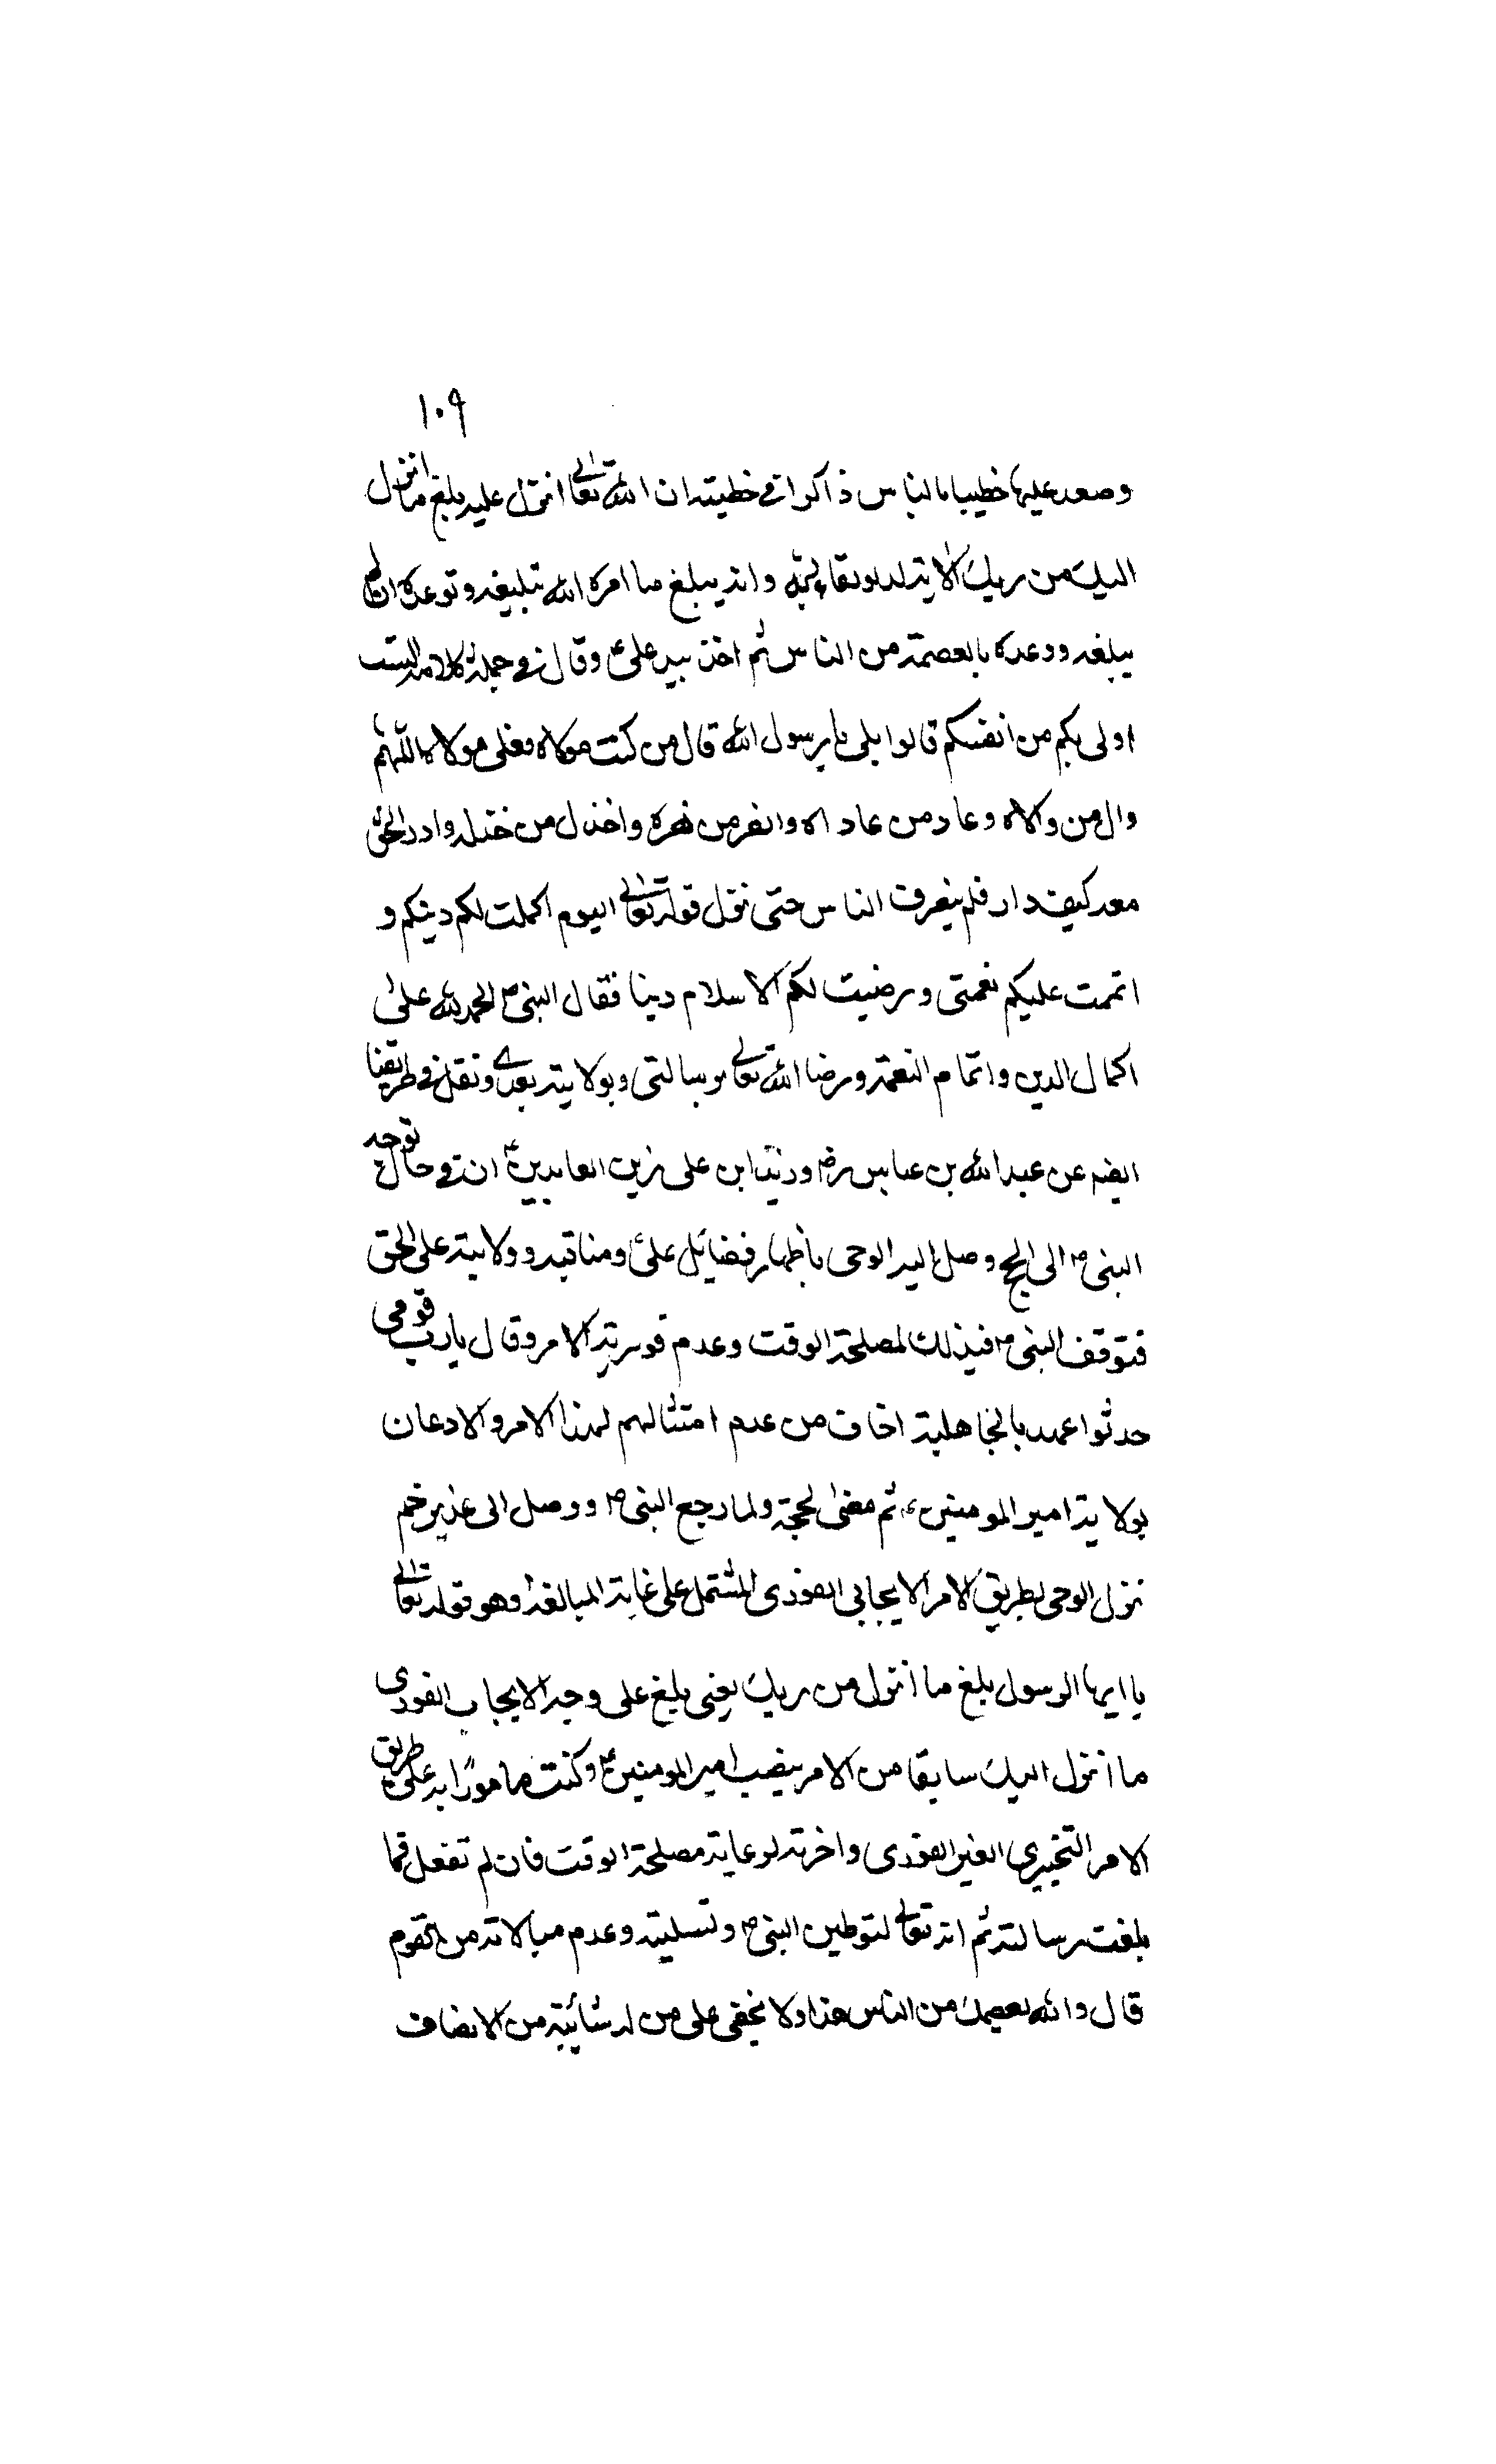 ١٠٩
وصعد عليها خطيبا بالناس ذاكرا في خطبته ان الله تعالى انزل عليه بلغ ما انزل
اليك من ربك الاية وانه يبلغ ما امره الله تبليغه وتوعده ان لم
يبلغه ووعده بالعصمة من الناس ثم اخذ بيد علي ع وقال في جملة كلامه الست
اولى بكم من انفسكم قالوا بلى يا رسول الله قال من كنت مولاه فعلي مولاه اللهم
وال من والاه وعاد من عاداه وانصر من نصره واخذل من خذله وادر الحق
معه كيف دار فلم ينصرف الناس حتى نزل قوله تعالى اليوم اكملت لكم دينكم و
اتممت عليكم نعمتي ورضيت لكم الاسلام دينا فقال النبي ص الحمد لله على
اكمال الدين واتمام النعمة ورضا الله تعالى برسالتي وبولايته بعدي ونقل في طريقنا
ايضا عن عبد الله بن عباس رض وزيد ابن علي زين العابدين ع ان في حال توجه
النبي ص الى الحج وصل اليه الوحي باظهار فضايل علي ع ومناقبه وولايته على الحق
فتوقف النبي ص في ذلك لمصلحة الوقت وعدم فورية الامر وقال يا رب قومي
حدثوا عهد بالجاهلية اخاف من عدم امتثالهم لهذا الامر والاذعان
بولاية امير المومنين ع ثم مضى لحجة ولما رجع النبي ص ووصل الى غدير خم
نزل الوحي بطريق الامر الايجابي الفوري المشتمل على غاية المبالغة وهو قوله تعالى
يا ايها الرسول بلغ ما انزل من ربك يعني بلغ على وجه الايجاب الفوري
ما انزل اليك سابقا من الامر بنصب امير المومنين ع وكنت مامورا به على طريق
الامر التخييري الغير الفوري واخرته لرعاية مصلحة الوقت فان لم تفعل فما
بلغت رسالته ثم انه تعالى لتوطين النبي ص وتسليته وعدم مبالاته من القوم
قال والله يعصمك من الناس هذا ولا يخفى على من له شائبة من الانصاف